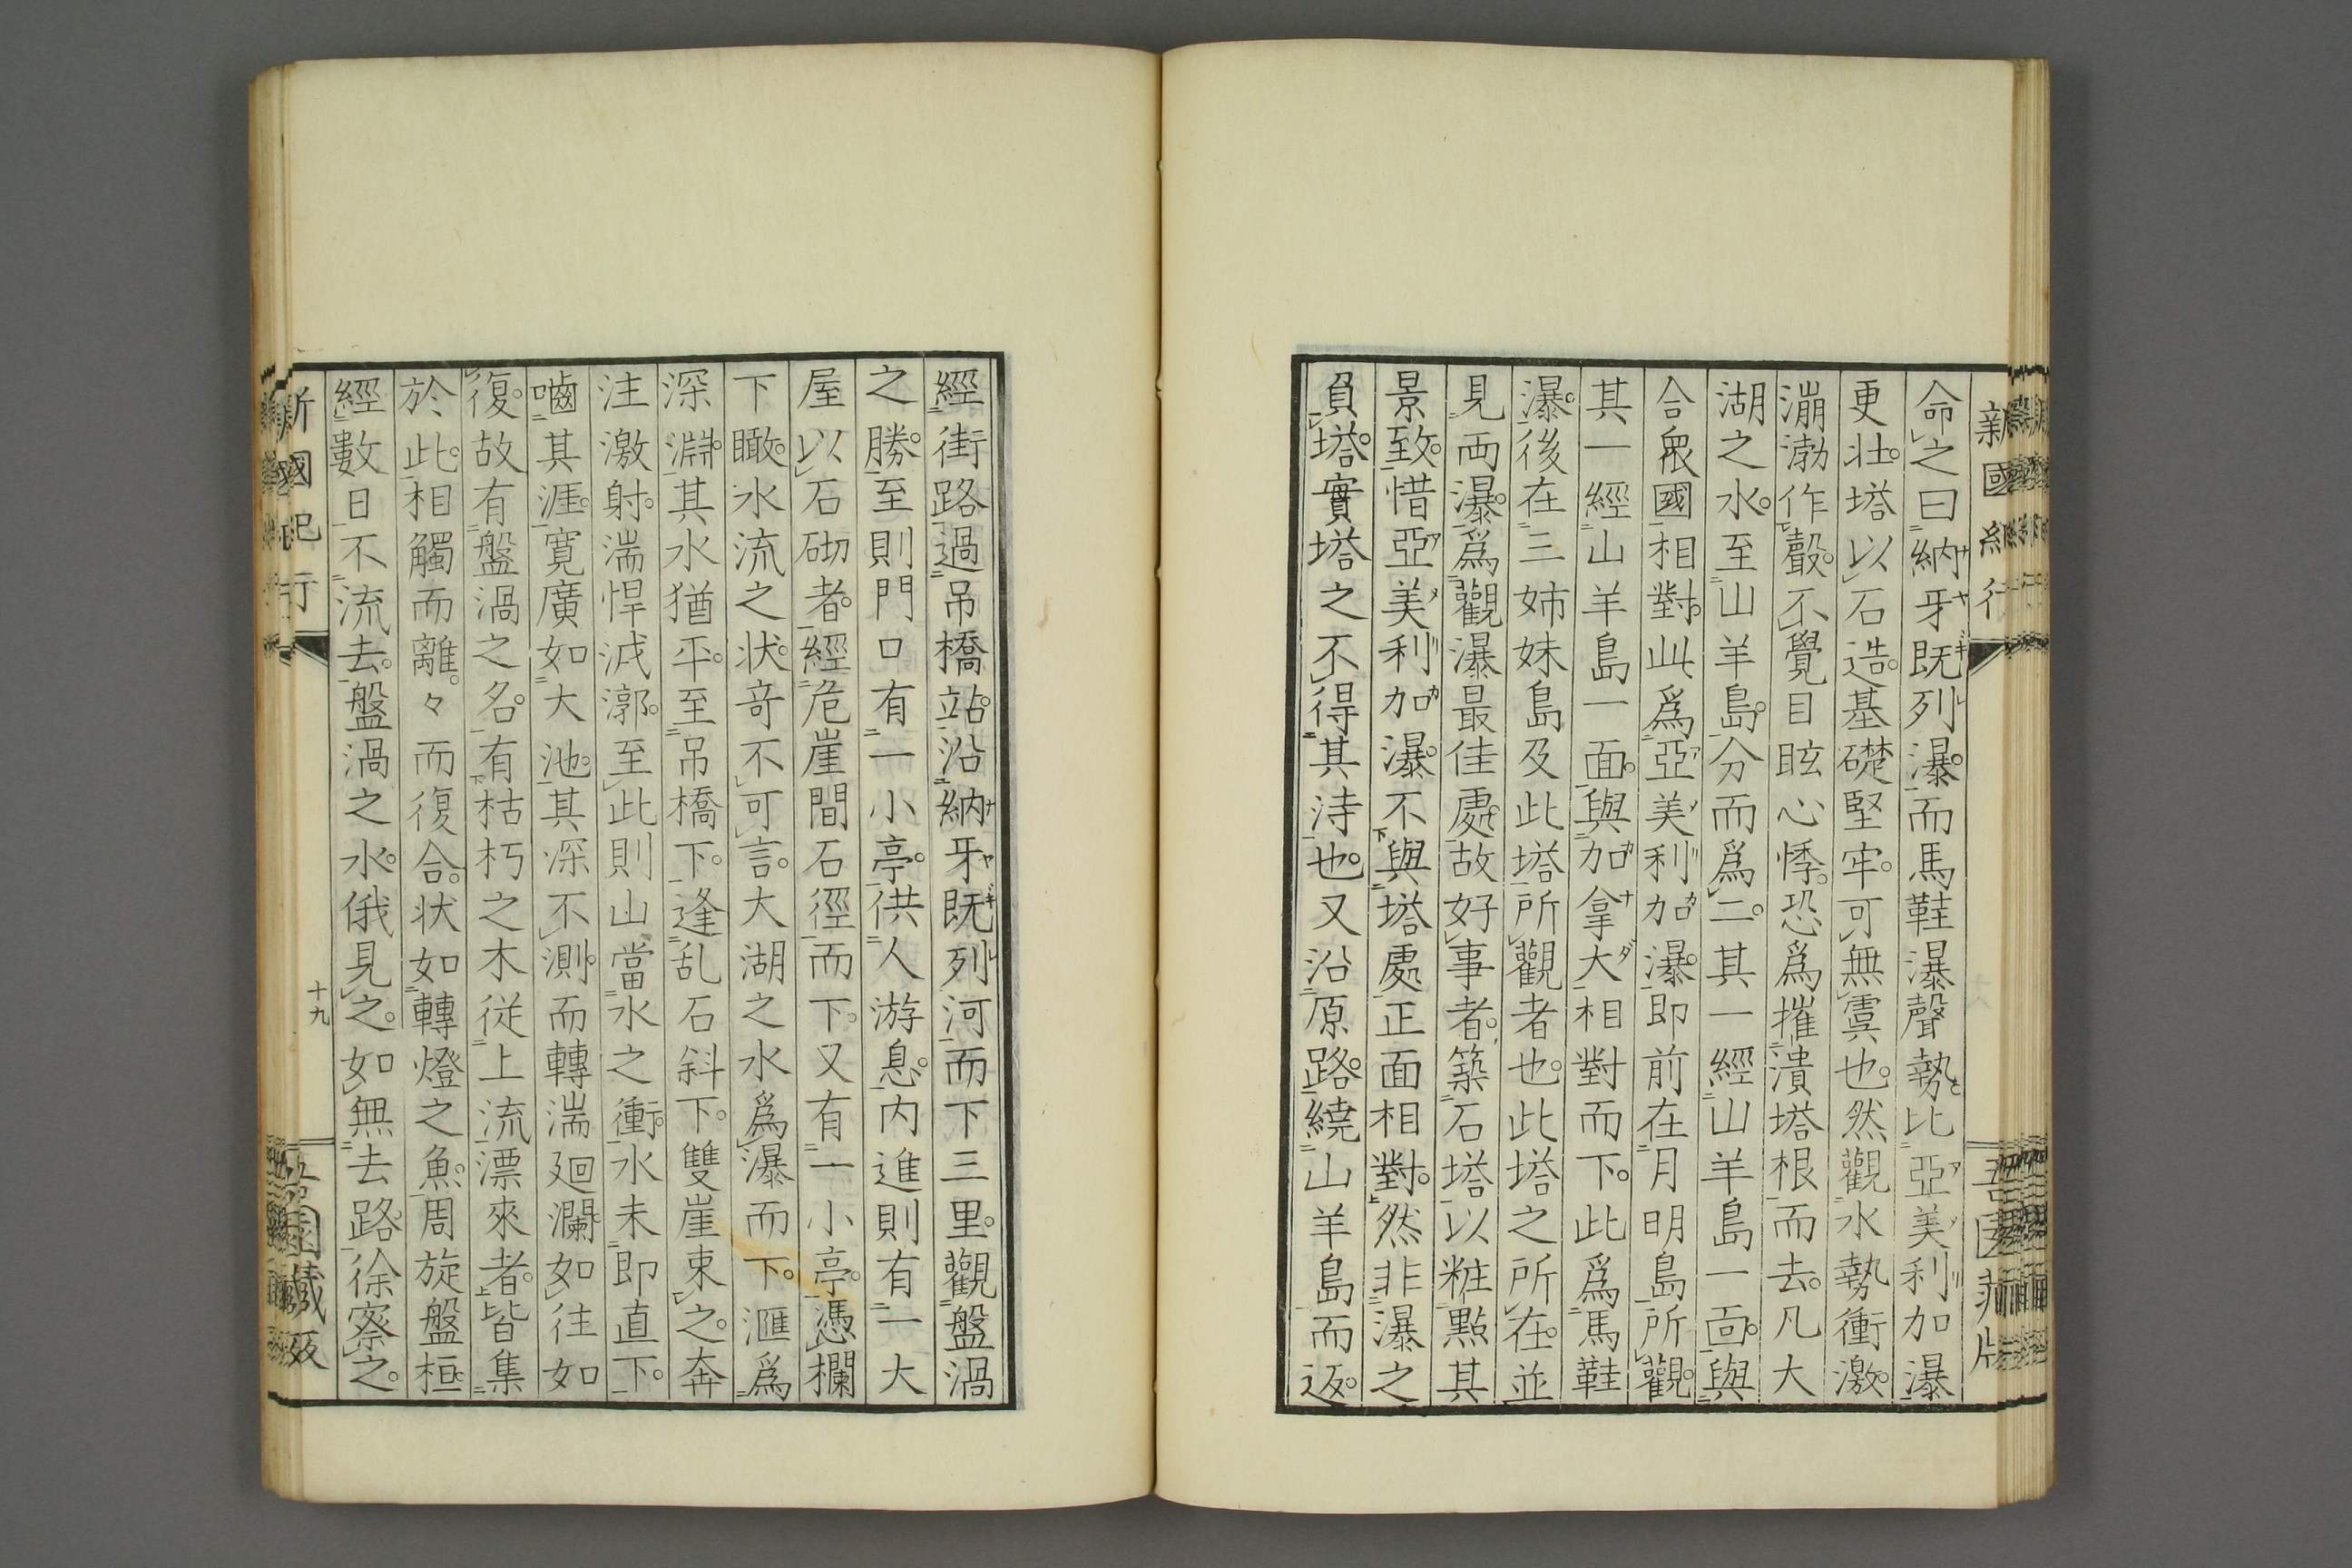 命之曰納牙既列瀑。而馬鞋瀑聲勢比亞美利加瀑
更壯。塔以石造。基礎堅牢。可無虞也。然觀水勢衝激。
漰渤作聲。不覺目眩心悸。恐爲摧潰塔根而去。凡大
湖之水。至山羊島。分而爲二。其一經山羊島一面。與
合衆國相對。此爲亞美利加瀑。即前在月明島所觀。
其一經山羊島一面。與加拿大相對而下。此爲馬鞋
瀑。後在三姉妹島及此塔所觀者也。此塔之所在。並
見两瀑。爲觀瀑最佳處。故好事者。築石塔以粧點其
景致。惜亞美利加瀑。不與塔處正面相對。然非瀑之
負塔。實塔之不得其洔也。又沿原路。繞山羊島而返。
經街路過吊橋站。沿納牙既列河而下三里。觀盤渦
之勝。至則門口有一小亭。供人游息。内進則有一大
屋以石砌者。經危崖間石徑而下。又有一小亭。憑欄
下瞰。水流之状。竒不可言。大湖之水爲瀑而下。滙爲
深淵。其水猶平。至吊橋下。逢乱石斜下。雙崖束之。奔
注激射。湍悍減漷。至此則山當水之衝。水未即直下。
嚙其涯。寛廣如大池。其深不測。而轉湍廻瀾。如往如
復。故有盤渦之名。有枯朽之木従上流漂來者。皆集
於此。相觸而離。々而復合。状如轉燈之魚。周旋盤桓。
經數日不流去。盤渦之水。俄見之。如無去路。徐察之。
新國紀行
十九